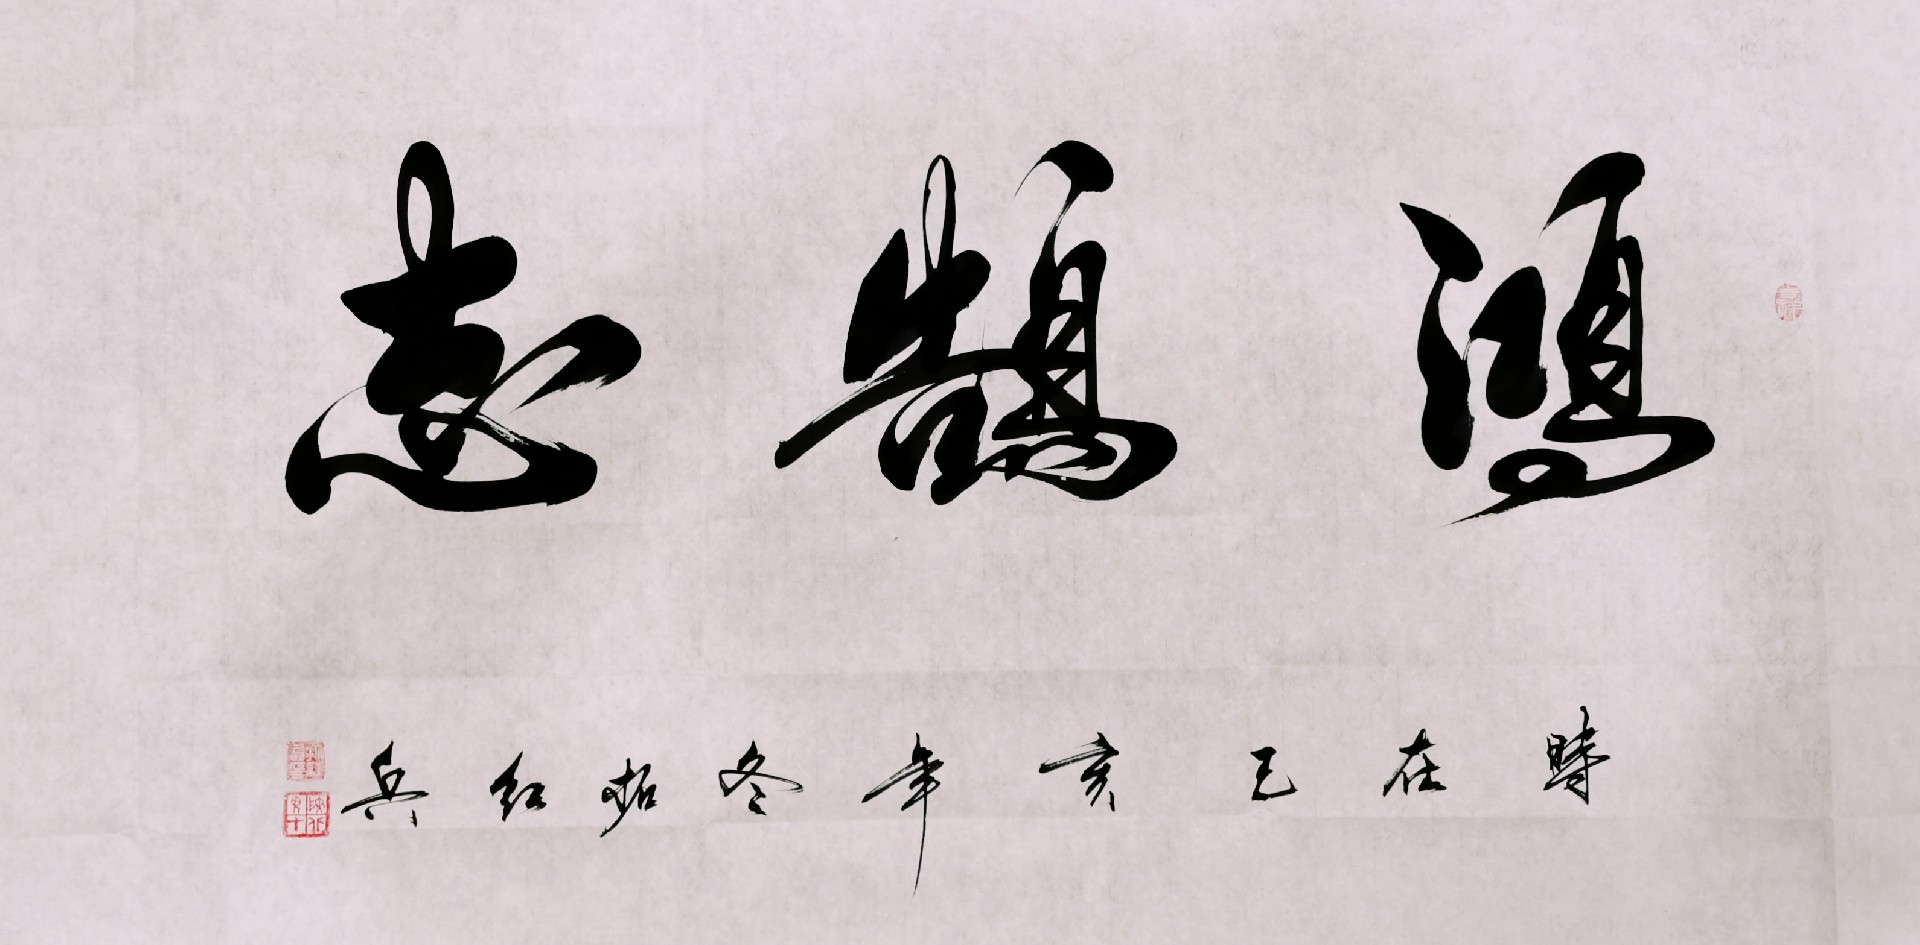 鴻鵠志
時在己亥年冬拓红兵